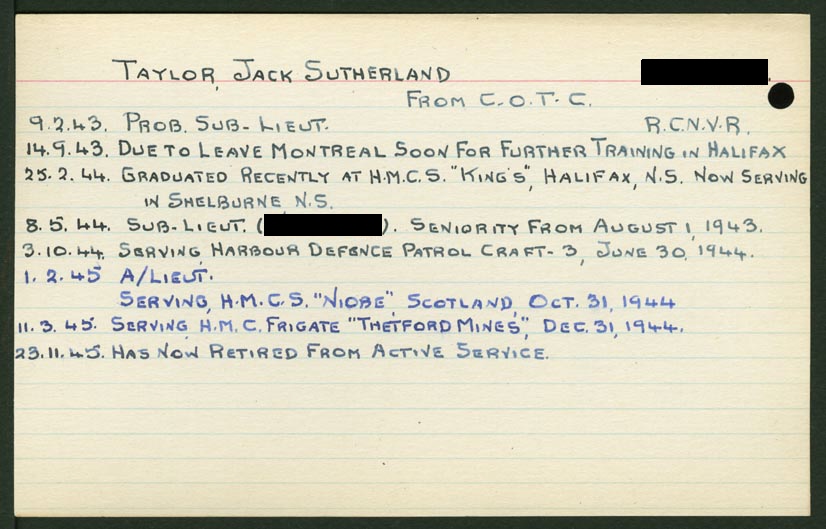 TAYLOR, JACK SUTHERLAND
FROM C.O.T.C.
9.2.43. PROB. SUB-LIEUT. R.C.N.V.R.
14.9.43. DUE TO LEAVE MONTREAL SOON FOR FURTHER TRAINING IN HALIFAX
25.2.44. GRADUATED RECENTLY AT H.M.C.S. "KING'S", HALIFAX, N.S. NOW SERVING
IN SHELBURNE, N.S.
8.5.44. SUB-LIEUT. ( ). SENIORITY FROM AUGUST 1, 1943.
3.10.44. SERVING, HARBOUR DEFENCE PATROL CRAFT-3, JUNE 30, 1944.
1.2.45 A/LIEUT.
SERVING, H.M.C.S. "NIOBE", SCOTLAND, OCT. 31, 1944
11.3.45. SERVING, H.M.C. FRIGATE "THETFORD MINES", DEC. 31, 1944.
23.11.45. HAS NOW RETIRED FROM ACTIVE SERVICE.